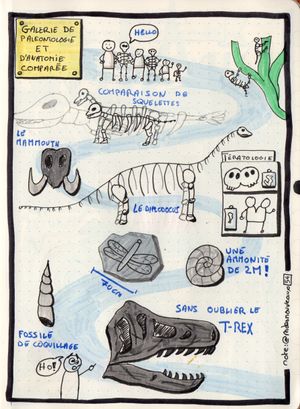 GALERIE DE
PALEONTOLOGIE
ET
D'ANATOMIE
COMPARÉE
HELLO
COMPARAISON DE
SQUELETTES
LE
MAMMOUTH
TÉRATOLOGIE
LE DIPLODOCUS
UNE
AMMONITE
DE 2M!
70CM
SANS OUBLIER LE
T-REX
FOSSILE
DE COQUILLAGE
HO!
54